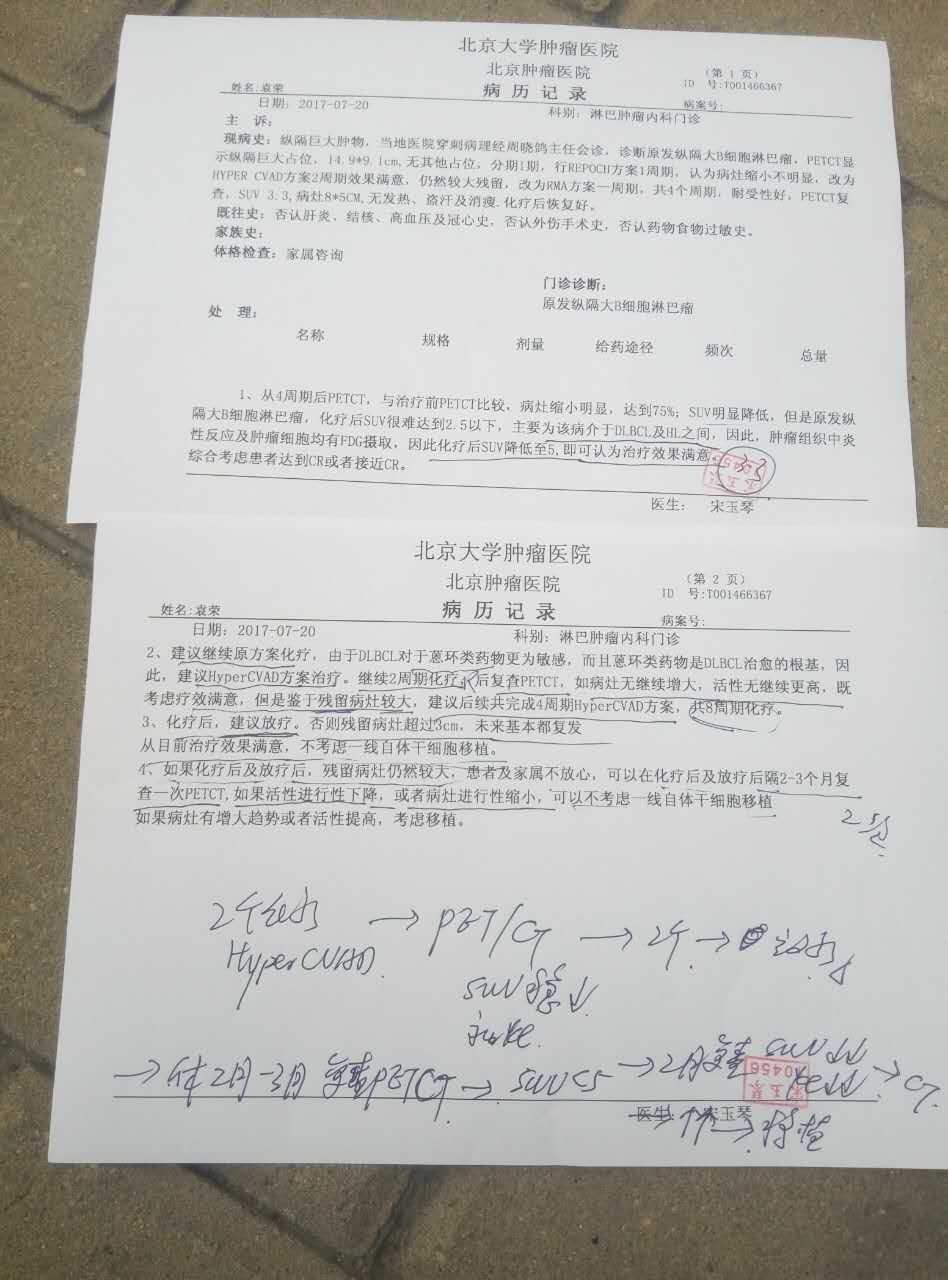 北京大学肿瘤医院
北京肿瘤医院
(第 1 页)
姓名:袁荣
病 历 记 录
ID 号:T001466367
日期: 2017-07-20
科别: 淋巴肿瘤内科门诊
病案号:
主 诉:
现病史: 纵隔巨大肿物, 当地医院穿刺病理经周晓鸽主任会诊, 诊断原发纵隔大B细胞淋巴瘤, PETCT显
示纵隔巨大占位, 14.9*9.1cm,无其他占位, 分期1期, 行REPOCH方案1周期, 认为病灶缩小不明显, 改为
HYPER CVAD方案2周期效果满意, 仍然较大残留, 改为RMA方案一周期, 共4个周期, 耐受性好, PETCT复
查, SUV 3.3,病灶8*5CM,无发热、盗汗及消瘦.化疗后恢复好。
既往史: 否认肝炎、结核、高血压及冠心史, 否认外伤手术史, 否认药物食物过敏史。
家族史:
体格检查: 家属咨询
门诊诊断:
原发纵隔大B细胞淋巴瘤
处 理:
名称 规格 剂量 给药途径 频次 总量
1、从4周期后PETCT, 与治疗前PETCT比较, 病灶缩小明显, 达到75%; SUV明显降低, 但是原发纵
隔大B细胞淋巴瘤, 化疗后SUV很难达到2.5以下, 主要为该病介于DLBCL及HL之间, 因此, 肿瘤组织中炎
性反应及肿瘤细胞均有FDG摄取, 因此化疗后SUV降低至5,即可认为治疗效果满意。
3.3
综合考虑患者达到CR或者接近CR。
医生: 宋玉琴
北京大学肿瘤医院
北京肿瘤医院
(第 2 页)
姓名:袁荣
病 历 记 录
ID 号:T001466367
日期: 2017-07-20
科别: 淋巴肿瘤内科门诊
病案号:
2、建议继续原方案化疗, 由于DLBCL对于蒽环类药物更为敏感, 而且蒽环类药物是DLBCL治愈的根基, 因
此, 建议HyperCVAD方案治疗。继续2周期化疗后复查PETCT, 如病灶无继续增大, 活性无继续更高, 既
考虑疗效满意, 但是鉴于残留病灶较大, 建议后续共完成4周期HyperCVAD方案, 共8周期化疗。
3、化疗后, 建议放疗。否则残留病灶超过3cm, 未来基本都复发
从目前治疗效果满意, 不考虑一线自体干细胞移植。
4、如果化疗后及放疗后, 残留病灶仍然较大, 患者及家属不放心, 可以在化疗后及放疗后隔2-3个月复
查一次PETCT,如果活性进行性下降, 或者病灶进行性缩小, 可以不考虑一线自体干细胞移植
如果病灶有增大趋势或者活性提高, 考虑移植。
2个 → PET/CT → 2个 →
HyperCVAD
SUV稳↓
→ 休2月-3月 复查PETCT → SUV<5 → 2月复查 SUV↓↓ → CT
宋玉琴
00456
医生: 宋玉琴
→ 移植